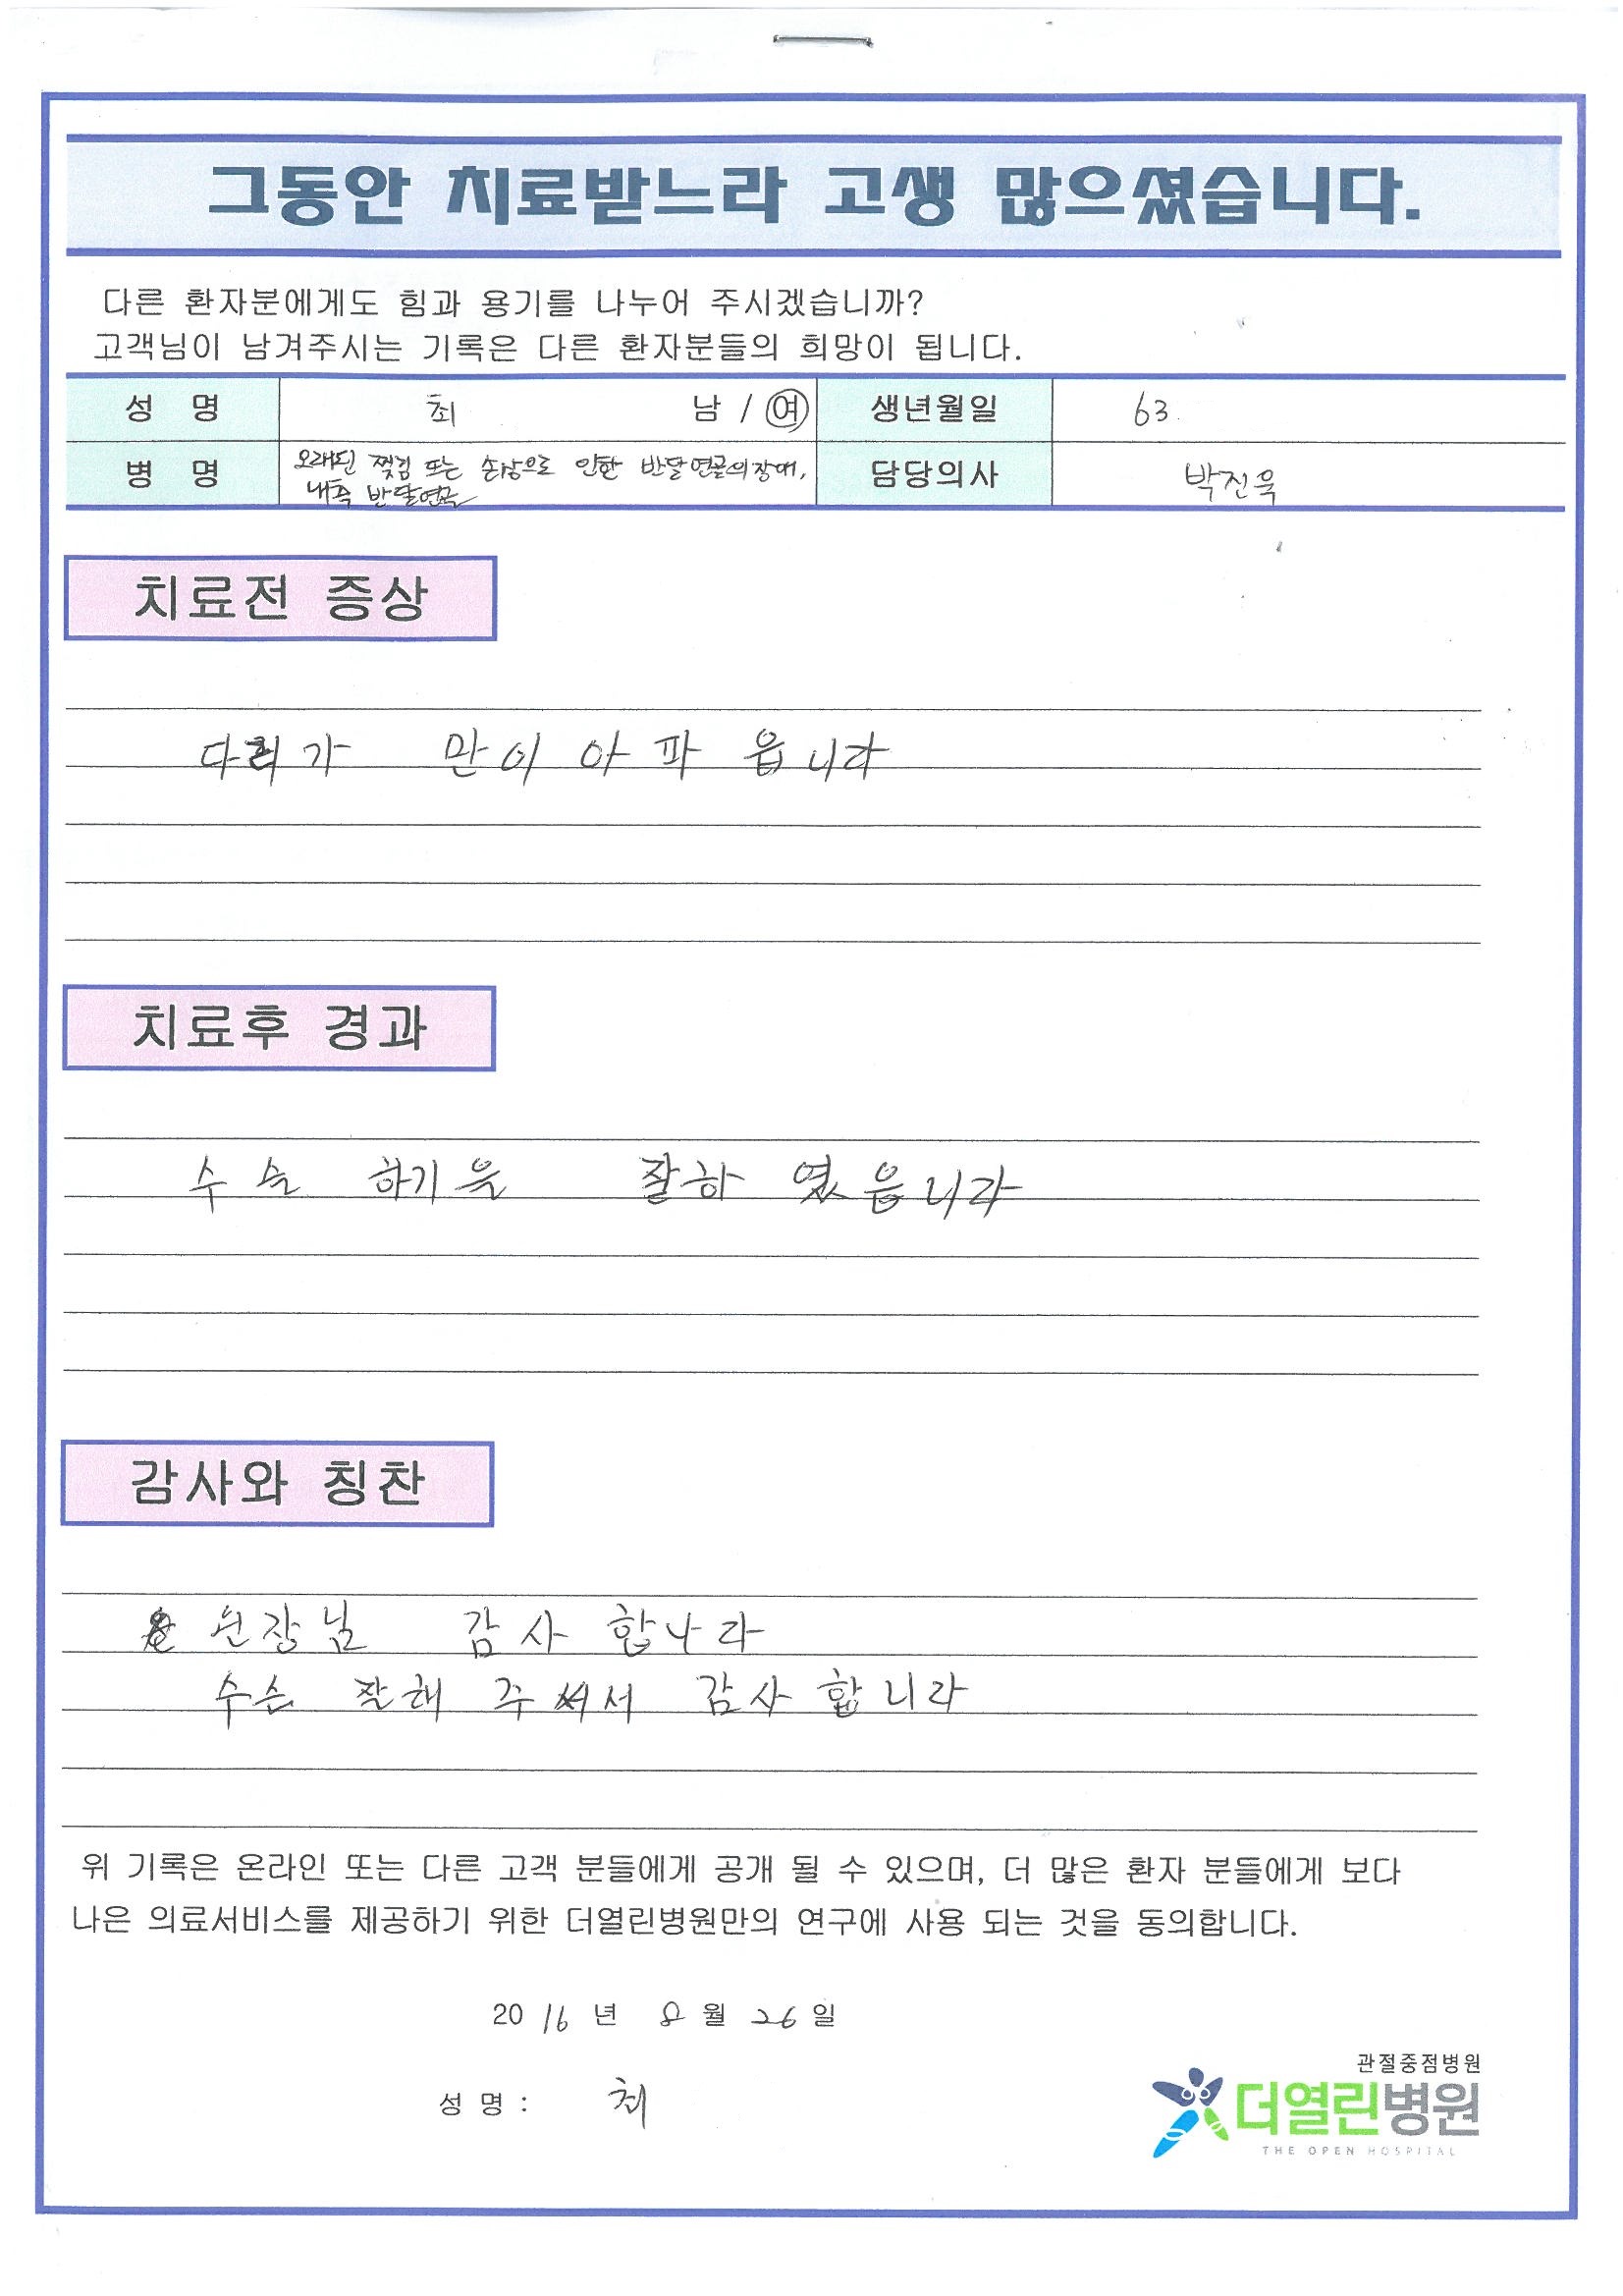 그동안 치료받느라 고생 많으셨습니다.
다른 환자분에게도 힘과 용기를 나누어 주시겠습니까?
고객님이 남겨주시는 기록은 다른 환자분들의 희망이 됩니다.
성 명 최 남 / 여 생년월일 63.
병 명 오래된 찢김 또는 손상으로 인한 반달연골의장애, 담당의사 박진욱
내측 반달연골
치료전 증상
다리가 만이 아파 읍니다
치료후 경과
수술 하기을 잘하 였읍니다
감사와 칭찬
원장님 감사 합니다
수순 잘해 주셔서 감사 합니다
위 기록은 온라인 또는 다른 고객 분들에게 공개 될 수 있으며, 더 많은 환자 분들에게 보다
나은 의료서비스를 제공하기 위한 더열린병원만의 연구에 사용 되는 것을 동의합니다.
2016 년 8 월 26 일
관절중점병원
성 명 : 최
더열린병원
THE OPEN HOSPITAL